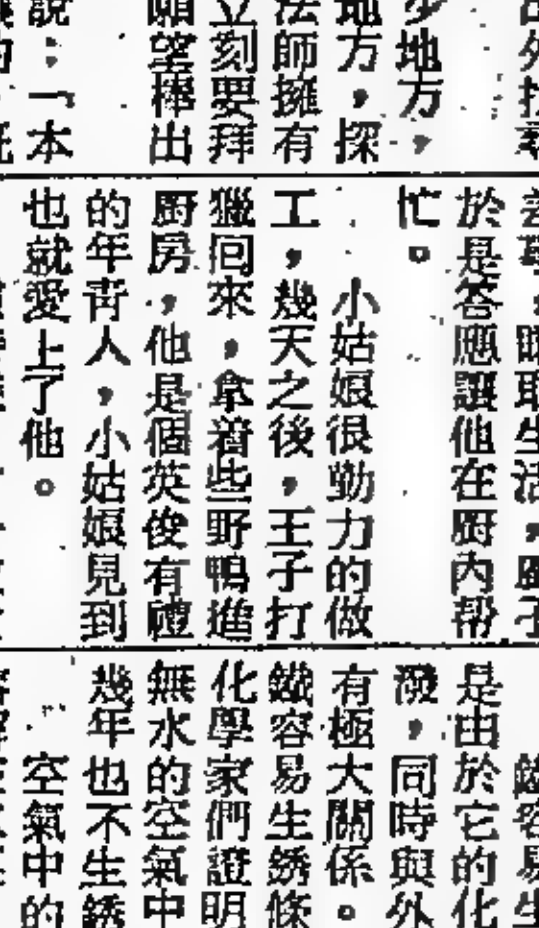 少地方，
地方，探
法師擁有
立刻要拜
願望棒出
說：一本
於是答應讓他在廚內帮
忙。
小姑娘很勤力的做
工，幾天之後，王子打
獵回來，拿着些野鴨進
廚房，他是個英俊有禮
的年青人，小姑娘見到
也就愛上了他。
鐵容易生
是由於它的化
潑，同時與外
有極大關係。
鐵容易生銹條
化學家們證明
無水的空氣中
幾年也不生銹
空氣中的